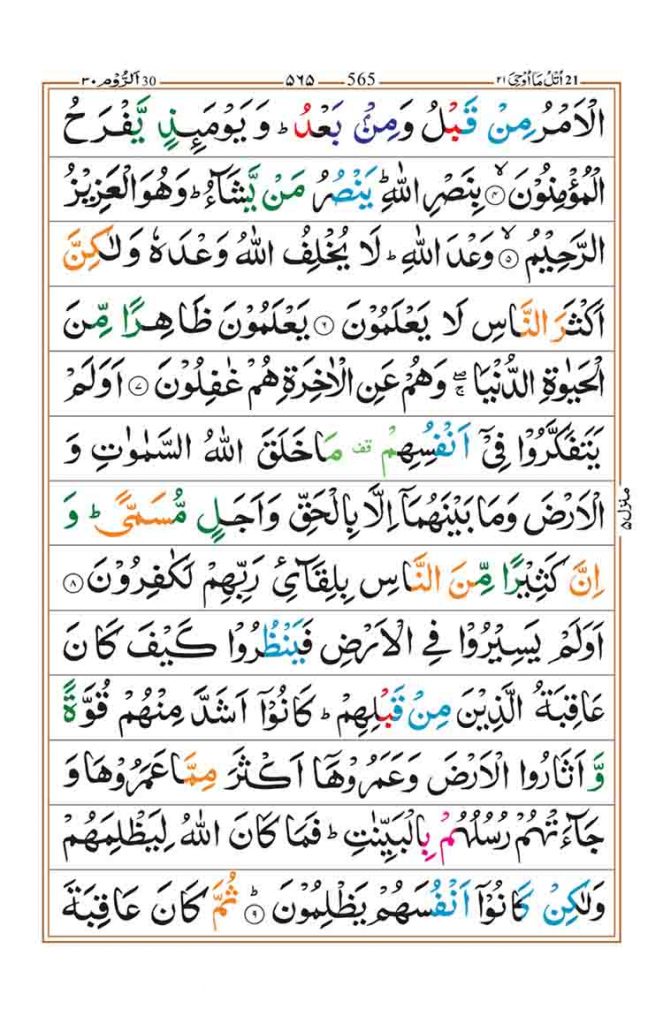 21 اُتْلُ مَا اُوْحِیَ ۲۱ 565 ۵۶۵ 30 اَلرُّوْم ۳۰
الْاَمْرُ مِنْ قَبْلُ وَمِنْۢ بَعْدُ ؕ وَ یَوْمَئِذٍ یَّفْرَحُ
الْمُؤْمِنُوْنَ ۙ۴ بِنَصْرِ اللّٰهِ ؕ یَنْصُرُ مَنْ یَّشَآءُ ؕ وَهُوَ الْعَزِیْزُ
الرَّحِیْمُ ۙ۵ وَعْدَ اللّٰهِ ؕ لَا یُخْلِفُ اللّٰهُ وَعْدَهٗ وَلٰكِنَّ
اَكْثَرَ النَّاسِ لَا یَعْلَمُوْنَ ۶ یَعْلَمُوْنَ ظَاهِرًا مِّنَ
الْحَیٰوةِ الدُّنْیَا ۖۚ وَهُمْ عَنِ الْاٰخِرَةِ هُمْ غٰفِلُوْنَ ۷ اَوَلَمْ
یَتَفَكَّرُوْا فِیْۤ اَنْفُسِهِمْ قف مَا خَلَقَ اللّٰهُ السَّمٰوٰتِ وَ
الْاَرْضَ وَمَا بَیْنَهُمَاۤ اِلَّا بِالْحَقِّ وَاَجَلٍ مُّسَمًّی ؕ وَ
اِنَّ كَثِیْرًا مِّنَ النَّاسِ بِلِقَآئِ رَبِّهِمْ لَكٰفِرُوْنَ ۸
اَوَلَمْ یَسِیْرُوْا فِی الْاَرْضِ فَیَنْظُرُوْا كَیْفَ كَانَ
عَاقِبَةُ الَّذِیْنَ مِنْ قَبْلِهِمْ ؕ كَانُوْۤا اَشَدَّ مِنْهُمْ قُوَّةً
وَّ اَثَارُوا الْاَرْضَ وَعَمَرُوْهَاۤ اَكْثَرَ مِمَّا عَمَرُوْهَا وَ
جَآءَتْهُمْ رُسُلُهُمْ بِالْبَیِّنٰتِ ؕ فَمَا كَانَ اللّٰهُ لِیَظْلِمَهُمْ
وَلٰكِنْ كَانُوْۤا اَنْفُسَهُمْ یَظْلِمُوْنَ ؕ۹ ثُمَّ كَانَ عَاقِبَةَ
منزل ۵